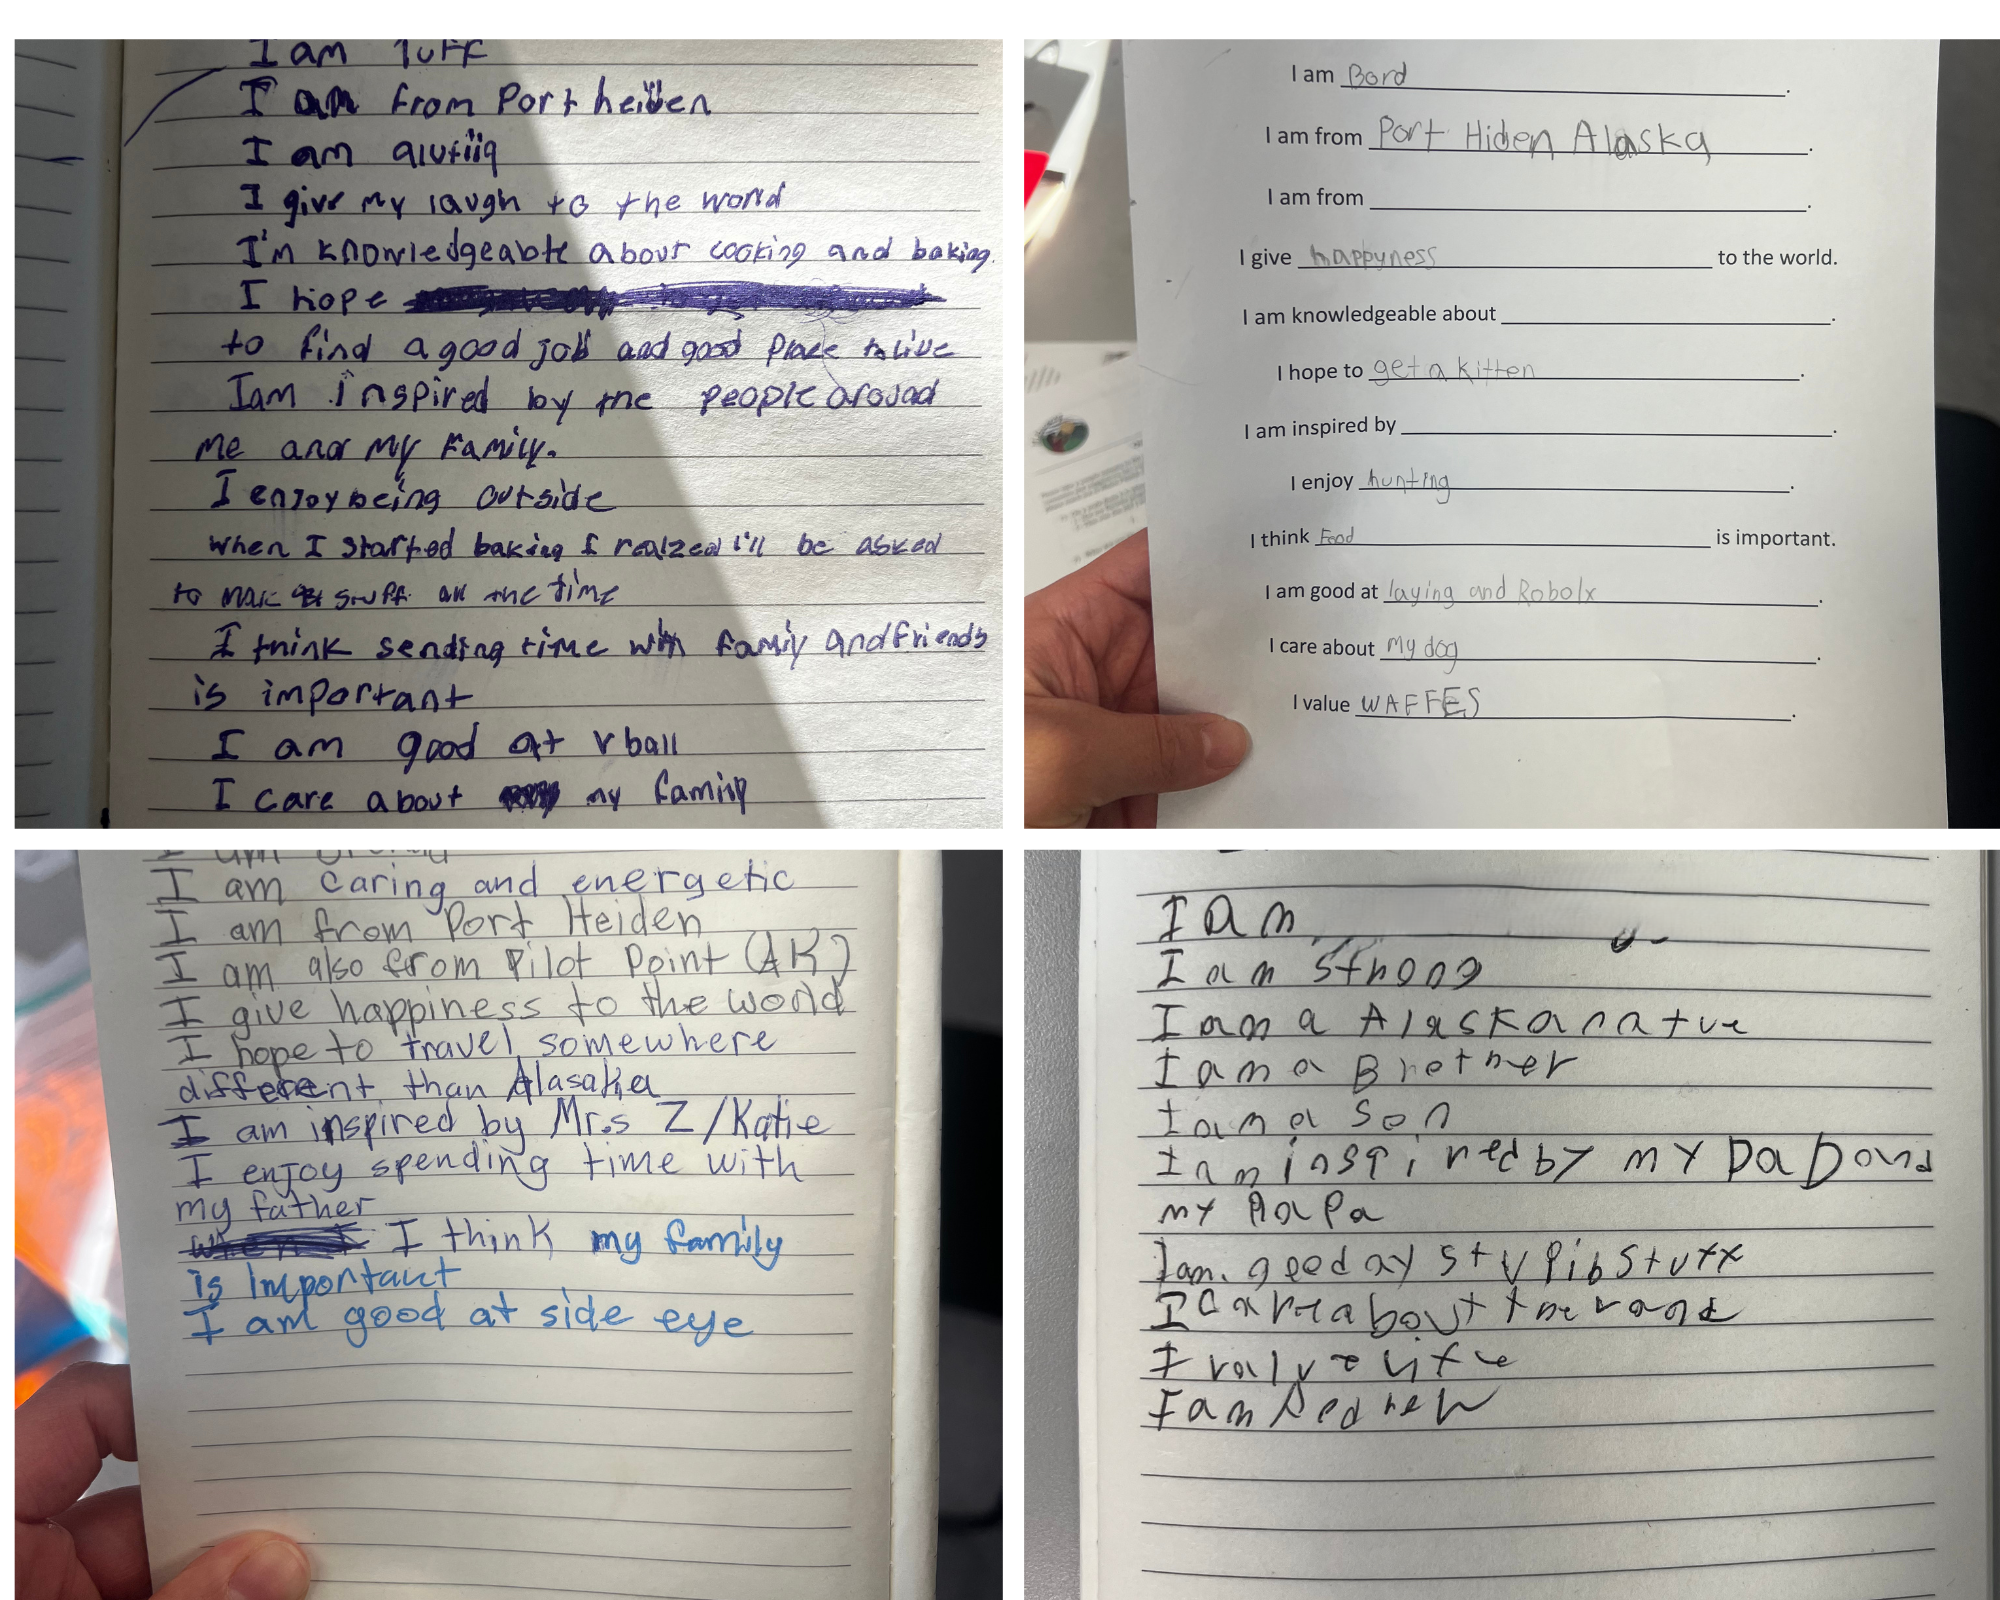 I am Tuff
I am from Port heiden
I am alutiiq
I give my laugh to the world
I'm knowledgeable about cooking and baking.
I hope
to find a good job and good place to live
I am inspired by the people around
me and my family.
I enjoy being outside
when I started baking I realzed I'll be asked
to make stuff all the time
I think sending time with family and friends
is important
I am good at vball
I care about my family
I am Bord.
I am from Port Hiden Alaska.
I am from.
I give happyness to the world.
I am knowledgeable about.
I hope to get a kitten.
I am inspired by.
I enjoy hunting.
I think Food is important.
I am good at laying and Robolx.
I care about my dog.
I value WAFFES.
I am caring and energetic
I am from Port Heiden
I am also from Pilot Point (AK)
I give happiness to the world
I hope to travel somewhere
different than Alasaka
I am inspired by Mr.s Z/Katie
I enjoy spending time with
my father
I think my family
is important
I am good at side eye
I am
I am strong
I am a Alaska natve
I am a Brother
I am a son
I am inspired by my Da D and
my PaPa
I am good ay stupib stuff
I care about
I value life
I am